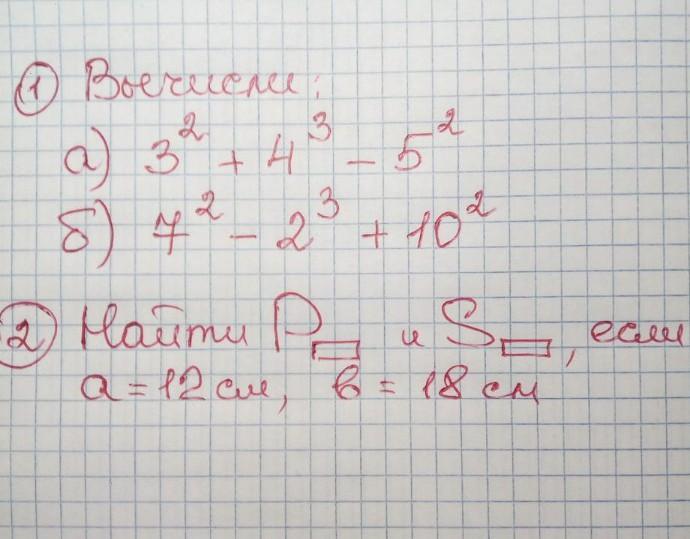 ① Вычисли:
а) 3² + 4³ - 5²
б) 7² - 2³ + 10²
② Найти P▭ и S▭, если
a = 12 см, в = 18 см